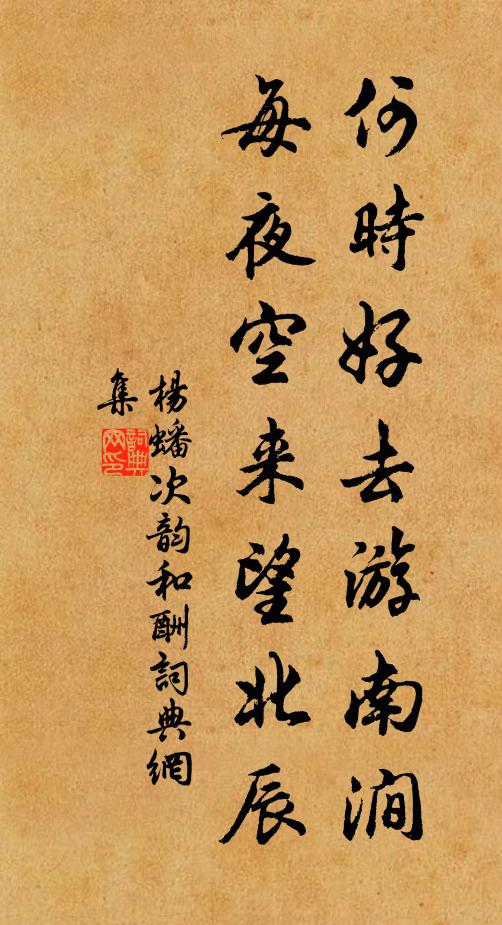 何時好去游南澗
每夜空来望北辰
楊蟠次韵和酬詞典網
集
詞典
网印